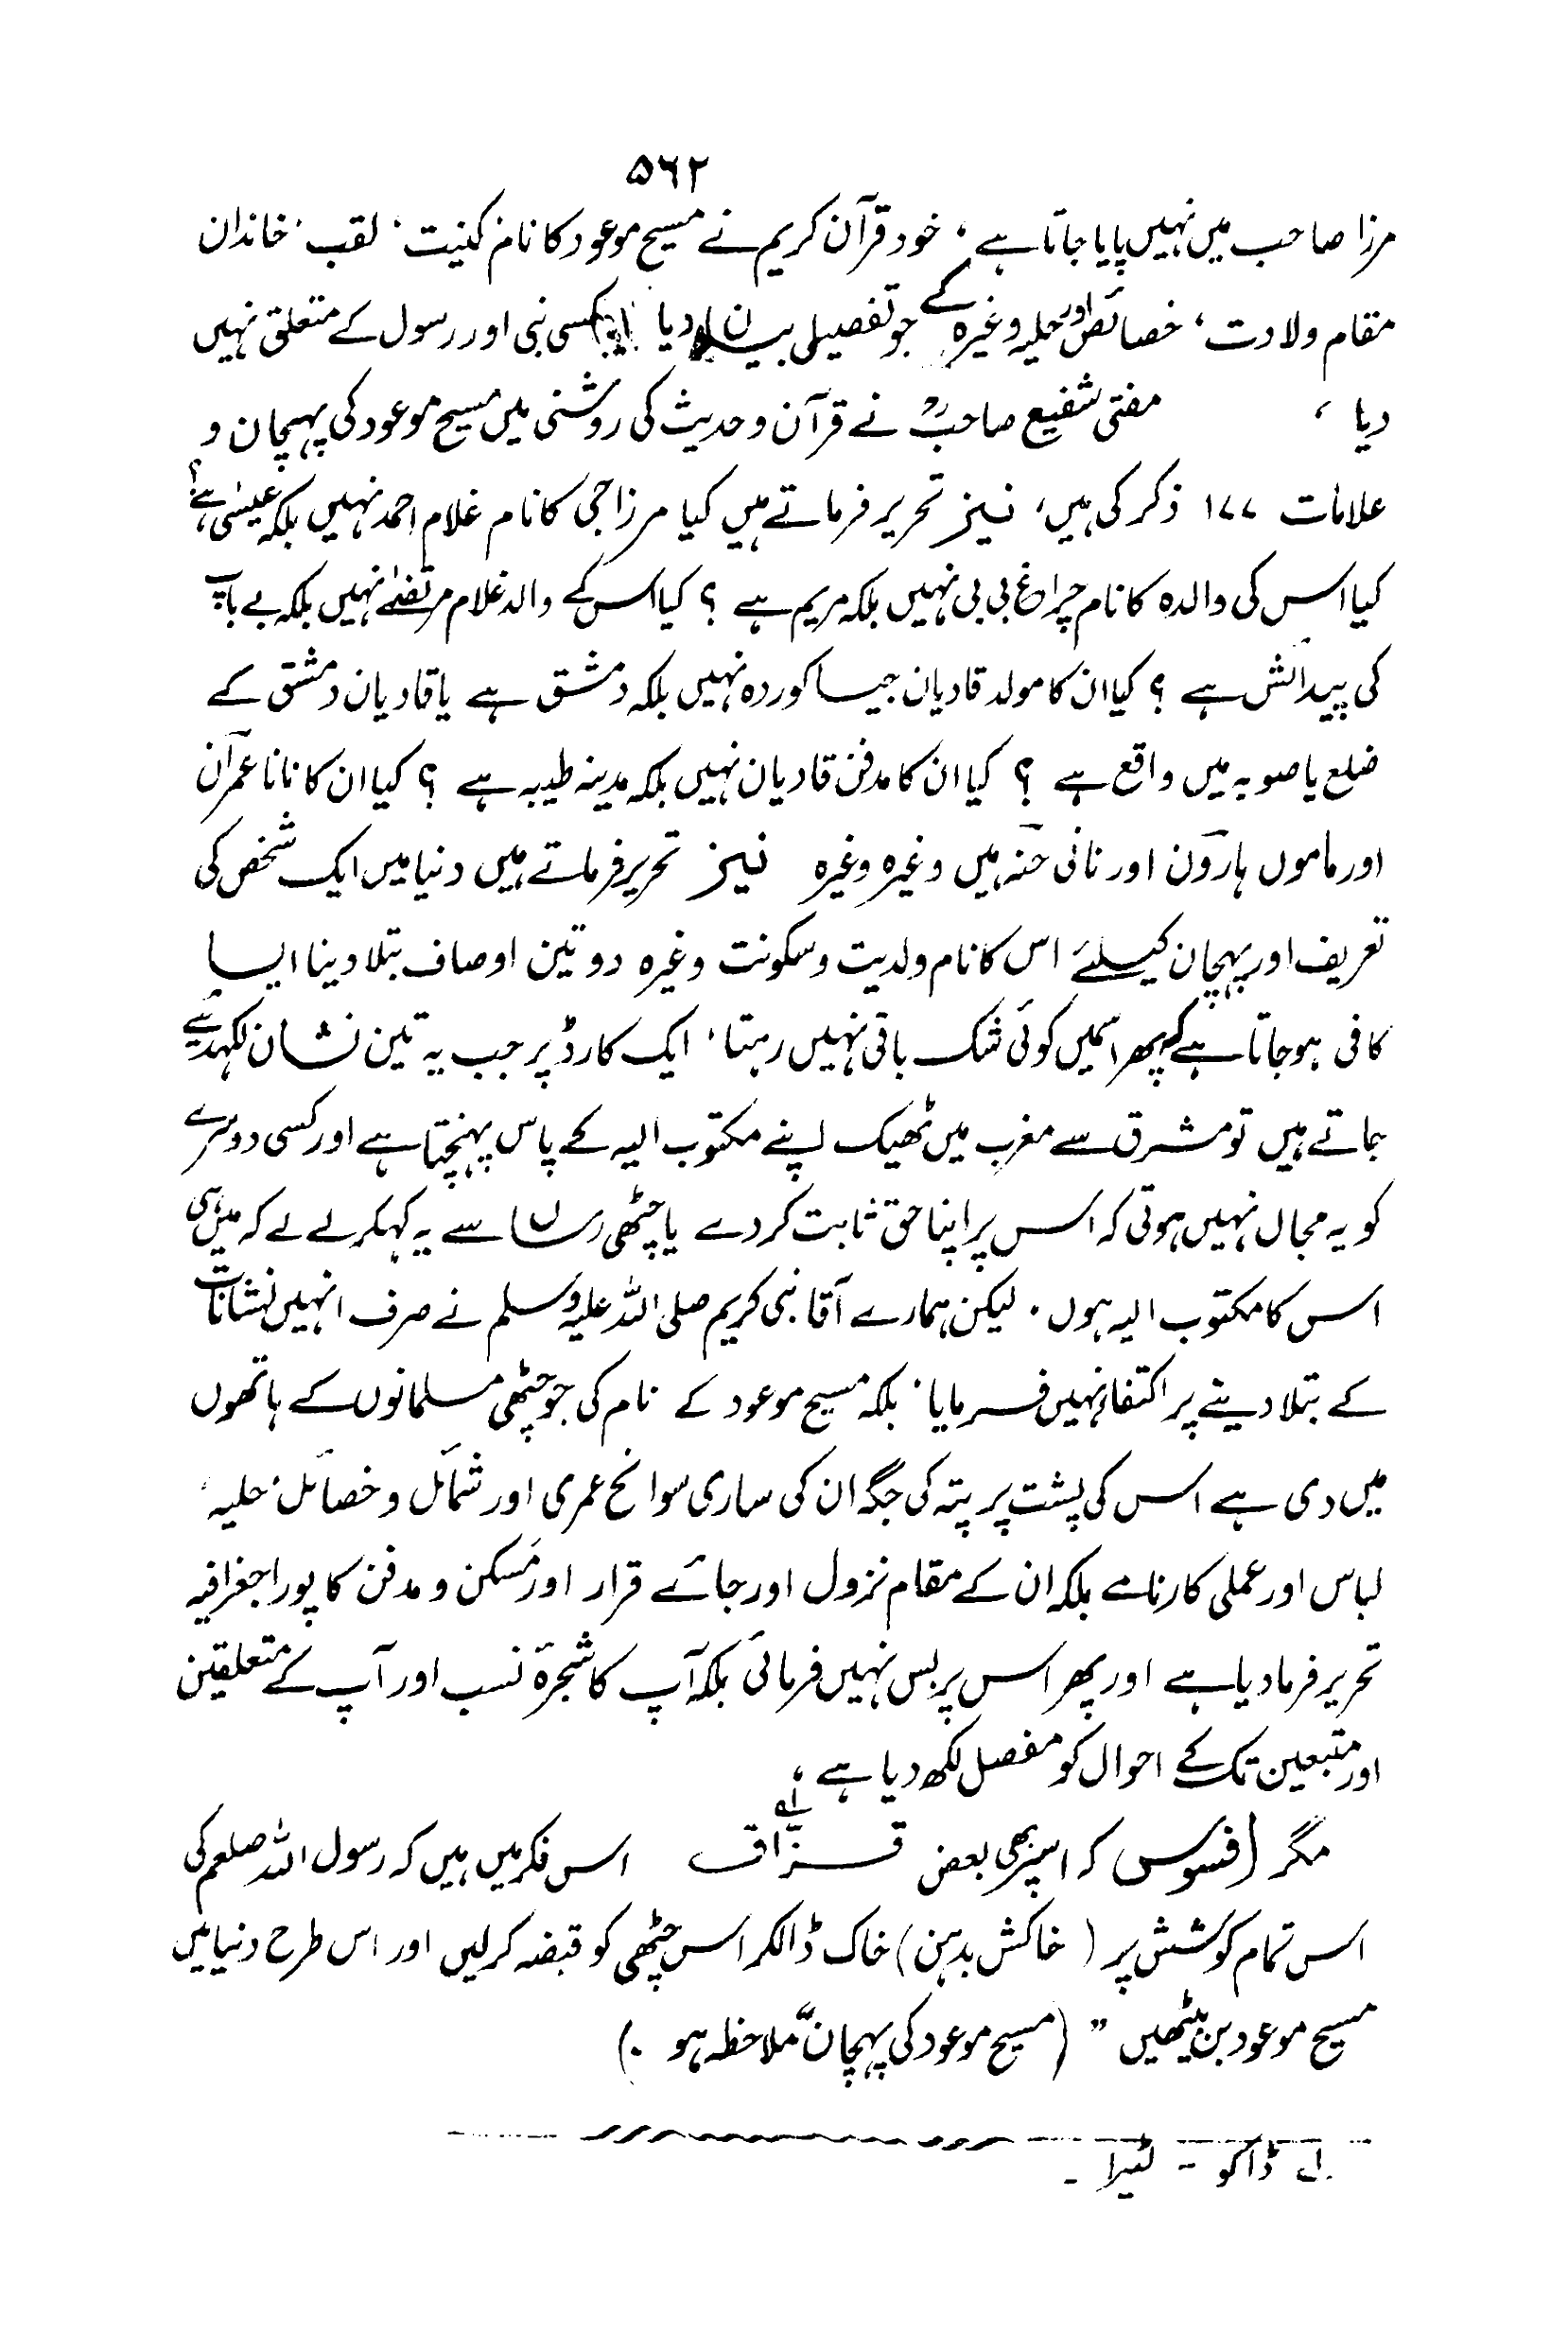 ۵۶۲
مرزا صاحب میں نہیں پایا جاتا ہے، خود قرآن کریم نے مسیح موعود کا نام کنیت، لقب، خاندان
مقام ولادت، خصائص اور حلیہ وغیرہ کے جو تفصیلی بیان دیا کسی نبی اور رسول کے متعلق نہیں
دیا ، مفتی شفیع صاحبؒ نے قرآن و حدیث کی روشنی میں مسیح موعود کی پہچان و
علامات ۱۷۷ ذکر کی ہیں، نیز تحریر فرماتے ہیں کیا مرزا جی کا نام غلام احمد نہیں بلکہ عیسٰی ہے؟
کیا اس کی والدہ کا نام چراغ بی بی نہیں بلکہ مریم ہے ؟ کیا اس کے والد غلام مرتضےٰ نہیں بلکہ بے باپ
کی پیدائش ہے ؟ کیا ان کا مولد قادیان جیسا کوردہ نہیں بلکہ دمشق ہے یا قادیان دمشق کے
ضلع یا صوبہ میں واقع ہے ؟ کیا ان کا مدفن قادیان نہیں بلکہ مدینہ طیبہ ہے ؟ کیا ان کا نانا عمران
اور ماموں ہارون اور نانی حنہ ہیں وغیرہ وغیرہ نیز تحریر فرماتے ہیں دنیا میں ایک شخص کی
تعریف اور پہچان کیلئے اس کا نام ولدیت و سکونت وغیرہ دو تین اوصاف بتلا دینا ایسا
کافی ہو جاتا ہے کہ پھر اسمیں کوئی شک باقی نہیں رہتا، ایک کارڈ پر جب یہ تین نشان لکھدیئے
جاتے ہیں تو مشرق سے مغرب میں ٹھیک اپنے مکتوب الیہ کے پاس پہنچتا ہے اور کسی دوسرے
کو یہ مجال نہیں ہوتی کہ اس پر اپنا حق ثابت کر دے یا چٹھی رساں سے یہ کہکر لے لے کہ میں ہی
اس کا مکتوب الیہ ہوں ۔ لیکن ہمارے آقا نبی کریم صلی اللہ علیہ وسلم نے صرف انہیں نشانات
کے بتلا دینے پر اکتفا نہیں فرمایا، بلکہ مسیح موعود کے نام کی جو چٹھی مسلمانوں کے ہاتھوں
میں دی ہے اس کی پشت پر پتہ کی جگہ ان کی ساری سوانح عمری اور شمائل و خصائل، حلیہ،
لباس اور عملی کارنامے بلکہ ان کے مقام نزول اور جائے قرار اور مسکن و مدفن کا پورا جغرافیہ
تحریر فرما دیا ہے اور پھر اس پر بس نہیں فرمائی بلکہ آپ کا شجرۂ نسب اور آپ کے متعلقین
اور متبعین تک کے احوال کو مفصل لکھ دیا ہے ،
مگر افسوس کہ اسپر بھی بعض قزّاق ؂۱ اس فکر میں ہیں کہ رسول اللہ صلعم کی
اس تمام کوشش پر ( خاکش بدہن) خاک ڈالکر اس چٹھی کو قبضہ کرلیں اور اس طرح دنیا میں
مسیح موعود بن بیٹھیں " (مسیح موعود کی پہچان" ملاحظہ ہو ۔)
؂۱ ڈاکو - لٹیرا -